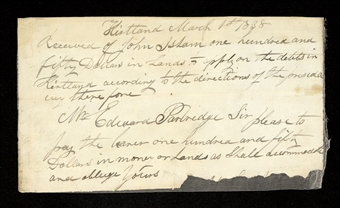 Kirtland March 1st 1838
Received of John Isham one hundred and
fifty Dollars in Lands to apply on the debts in
Kirtland according to the directions of the
therefore
Mr Edward Partridge Sir please to
pay the one hundred and fifty
Dollars in money or Lands as shall accommodate
and oblige Yours